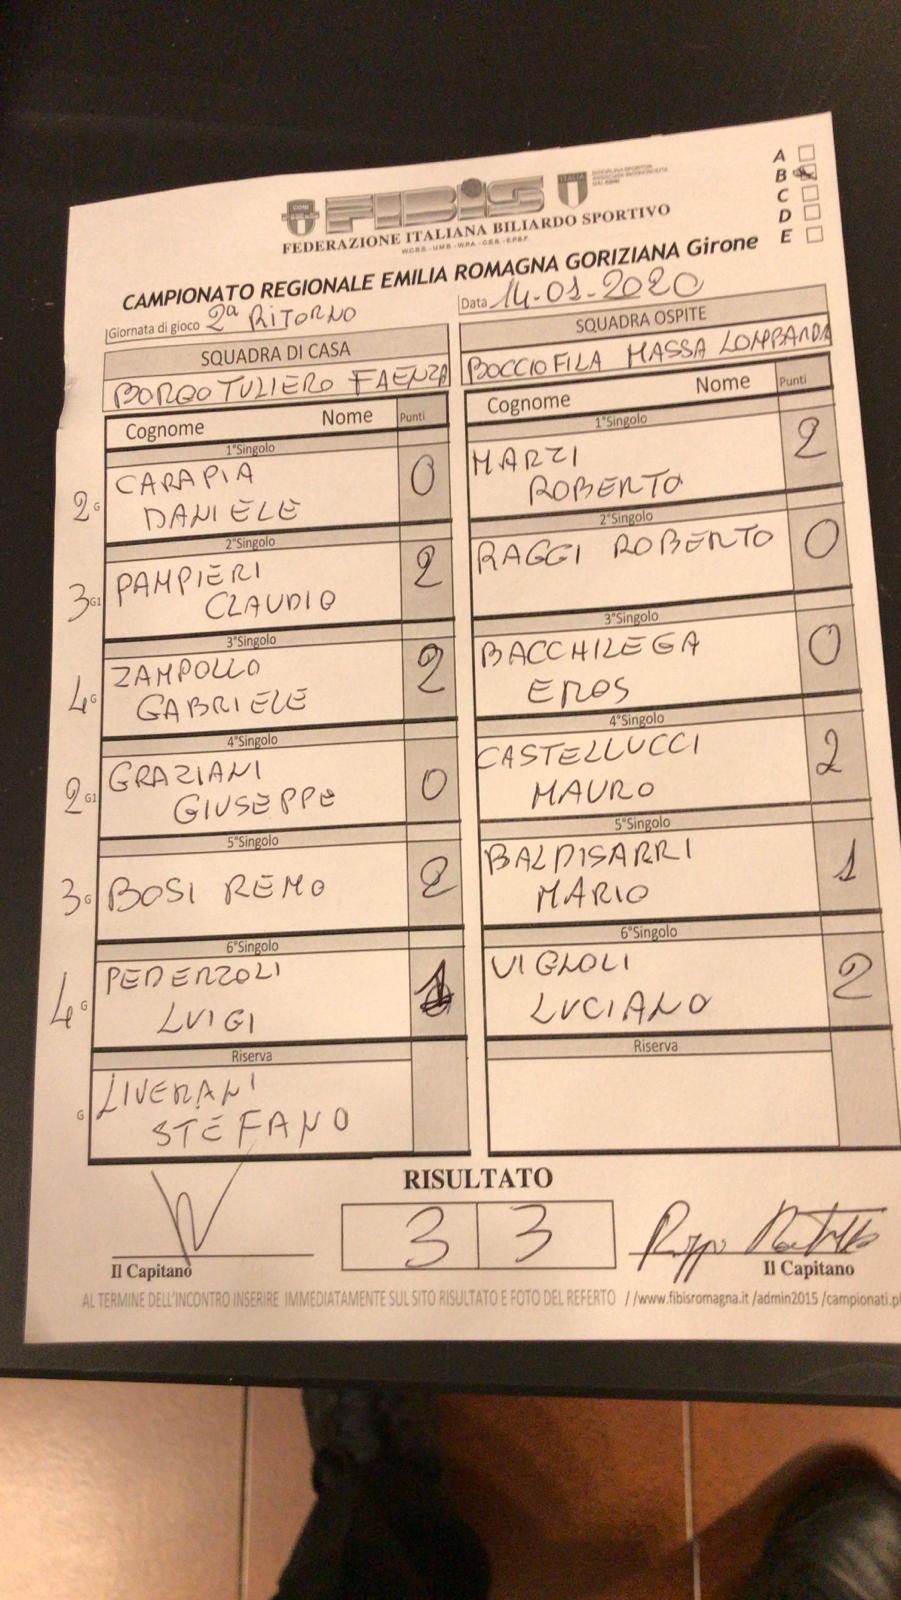 A
B
C
D
E
CONI
FIBIS
ITALIA
FEDERAZIONE ITALIANA BILIARDO SPORTIVO
CAMPIONATO REGIONALE EMILIA ROMAGNA GORIZIANA Girone
Giornata di gioco 2ª RITORNO
Data 14-01-2020
SQUADRA DI CASA
SQUADRA OSPITE
BORGO TULIERO FAENZA
BOCCIOFILA MASSA LOMBARDA
Cognome Nome Punti
Cognome Nome Punti
1°Singolo
1°Singolo
2 G CARAPIA 0
DANIELE
MARZI 2
ROBERTO
2°Singolo
2°Singolo
3 G1 PAMPIERI 2
CLAUDIO
RAGGI ROBERTO 0
3°Singolo
3°Singolo
4 G ZAMPOLLO 2
GABRIELE
BACCHILEGA 0
EROS
4°Singolo
4°Singolo
2 G1 GRAZIANI 0
GIUSEPPE
CASTELLUCCI 2
MAURO
5°Singolo
5°Singolo
3 G BOSI REMO 2
BALDISARRI 1
MARIO
6°Singolo
6°Singolo
4 G PEDERZOLI 1
LUIGI
VIGNOLI 2
LUCIANO
Riserva
Riserva
G LIVERANI
STEFANO
RISULTATO
3 3
Il Capitano
Il Capitano
AL TERMINE DELL'INCONTRO INSERIRE IMMEDIATAMENTE SUL SITO RISULTATO E FOTO DEL REFERTO //www.fibisromagna.it /admin2015 /campionati.p